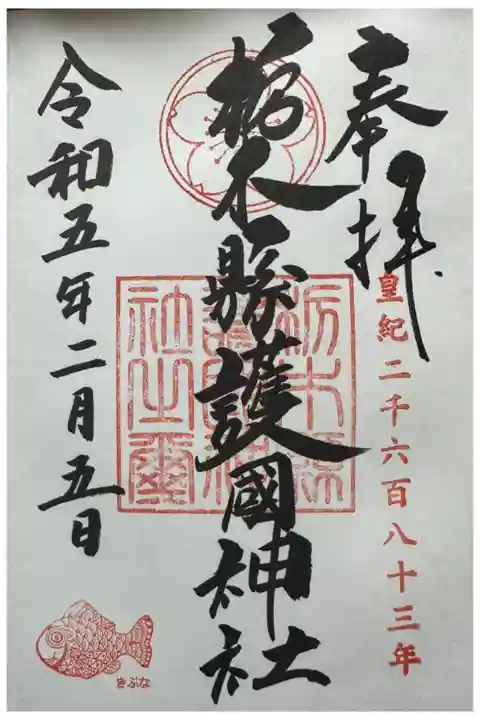 奉拝
皇紀二千六百八十三年
栃木縣護國神社
栃木縣護國神社之璽
令和五年二月五日
きぶな